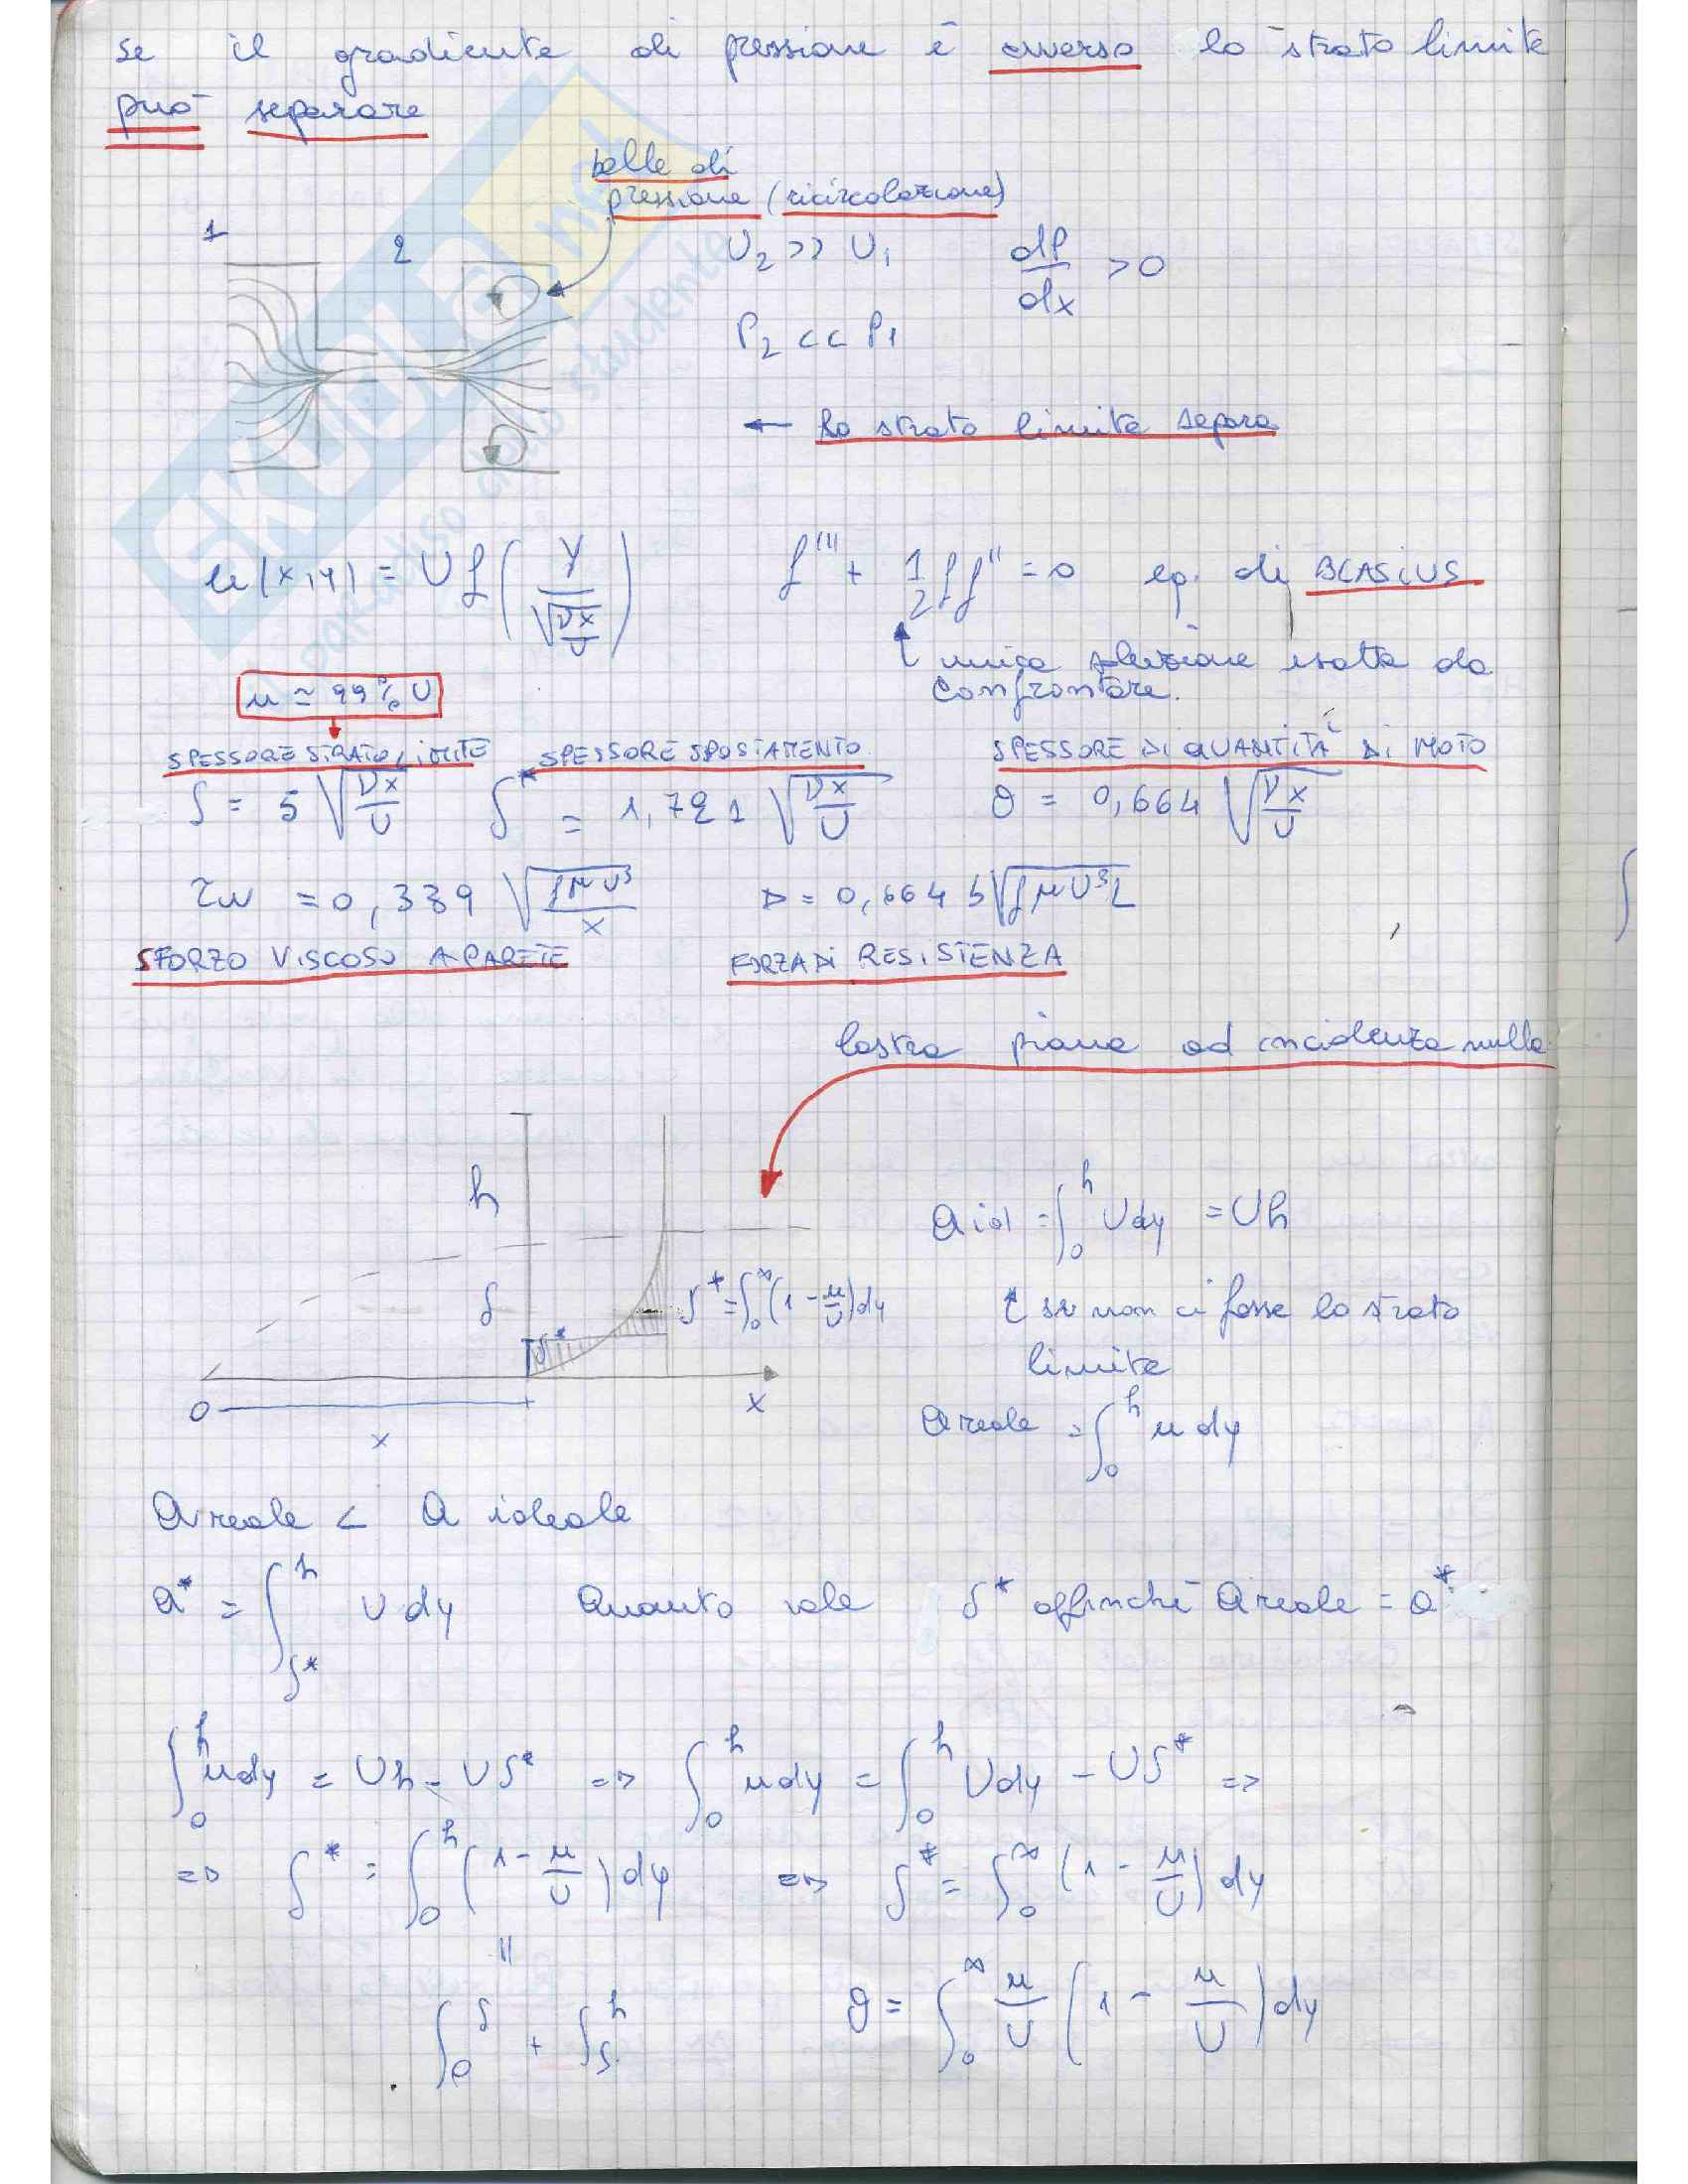 Se il gradiente di pressione è avverso lo strato limite
può separare
bolle di
pressione (ricircolazione)
1
2
U₂ >> U₁   dP/dx > 0
P₂ << P₁
← lo strato limite separa
u(x,y) = U f( y / √(νx/U) )   f''' + 1/2 f f'' = 0 eq. di BLASIUS
↑ unica soluzione esatta da
confrontare.
u ≃ 99% U
SPESSORE STRATO LIMITE   SPESSORE SPOSTAMENTO   SPESSORE DI QUANTITÀ DI MOTO
δ = 5 √(νx/U)   δ* = 1,721 √(νx/U)   θ = 0,664 √(νx/U)
τw = 0,339 √(ρμU³/x)   D = 0,664 b √(ρμU³L)
SFORZO VISCOSO A PARETE   FORZA DI RESISTENZA
lastra piana ad incidenza nulla
h
δ
δ*
δ* = ∫₀^∞ (1 - u/U) dy
0
x
x
Q id = ∫₀^h U dy = Uh
↑ se non ci fosse lo strato
limite
Q reale = ∫₀^h u dy
Q reale < Q ideale
Q* = ∫_δ*^h U dy   Quanto vale δ* affinché Q reale = Q*
∫₀^h u dy = Uh - Uδ* => ∫₀^h u dy = ∫₀^h U dy - Uδ* =>
=> δ* = ∫₀^h (1 - u/U) dy => δ* = ∫₀^∞ (1 - u/U) dy
||
∫₀^δ + ∫_δ^h   θ = ∫₀^∞ u/U (1 - u/U) dy
SKUOLA.net
paradiso dello studente